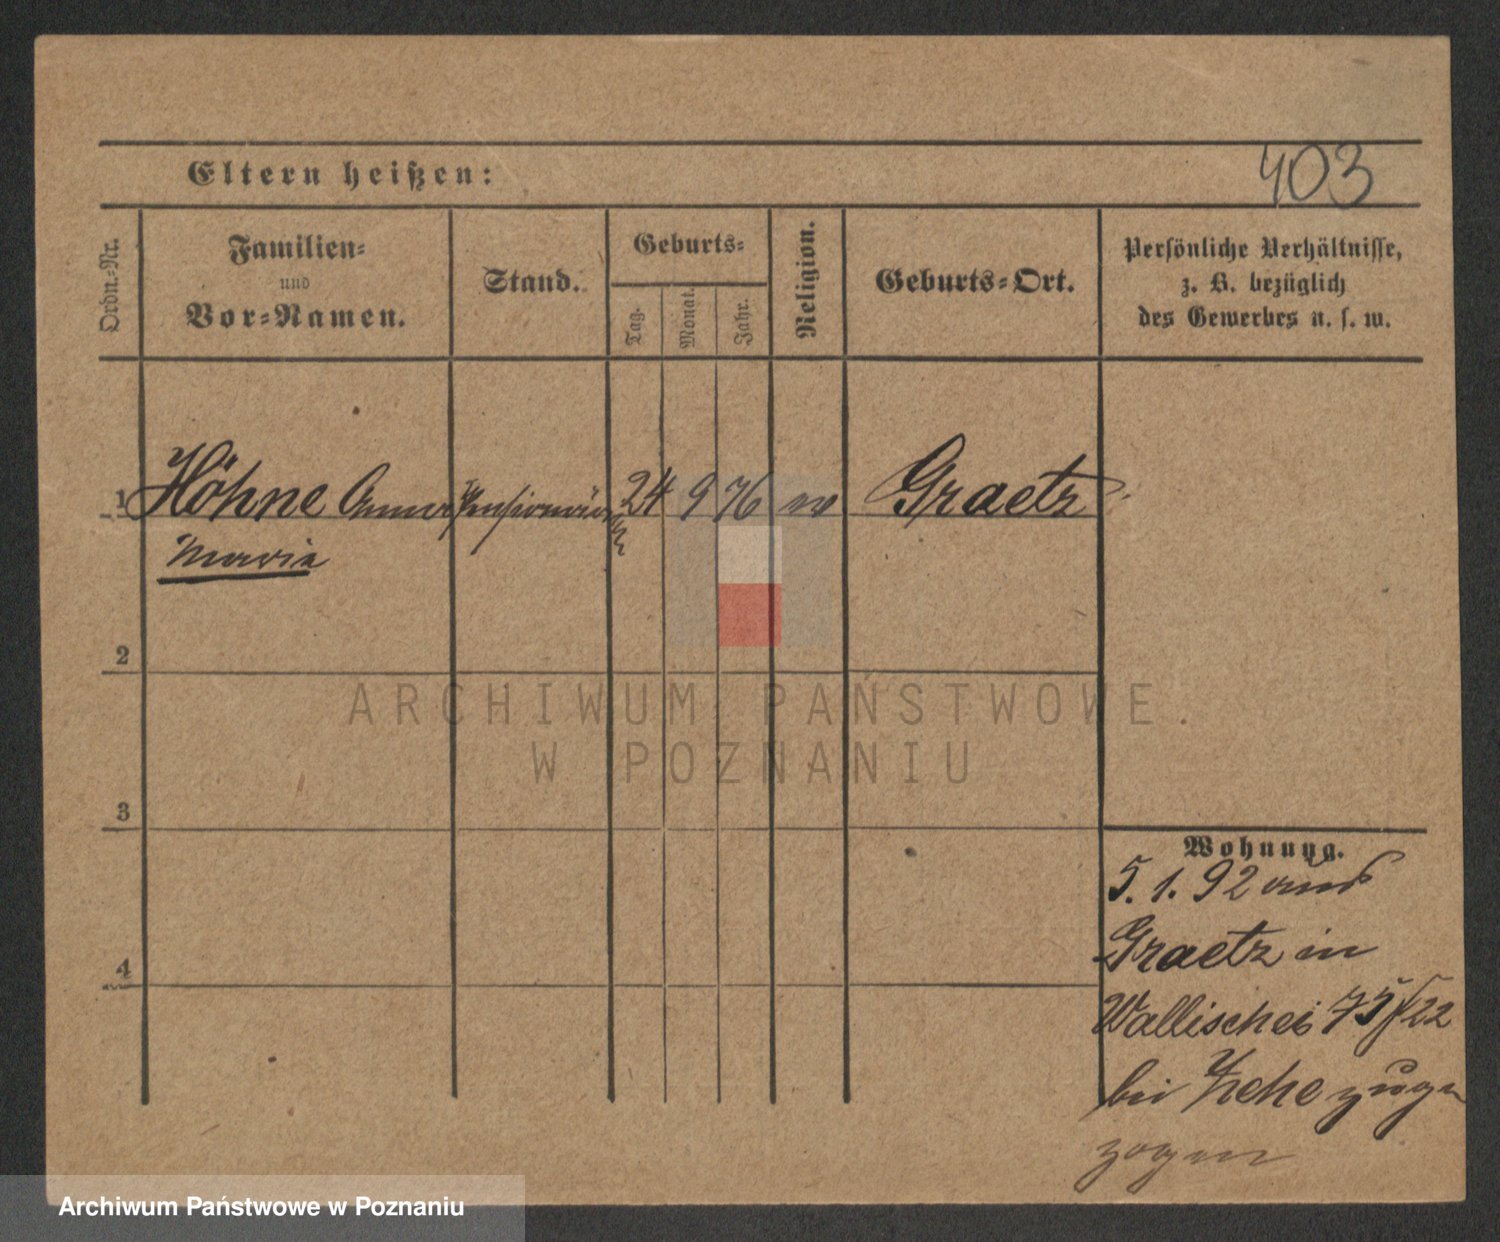 Eltern heißen:
403
Ordn.-Nr.
Familien-
und
Vor-Namen.
Stand.
Geburts-
Tag.
Monat.
Jahr.
Religion.
Geburts-Ort.
Persönliche Verhältnisse,
z. B. bezüglich
des Gewerbes u. s. w.
1 Höhne Anna Pensionärin 24 9 76 ev Graetz
Marie
2
3
4
ARCHIWUM PAŃSTWOWE
W POZNANIU
Wohnung.
5. 1. 92 aus
Graetz in
Wallischei 75/22
bei Zehe zuge
zogen
Archiwum Państwowe w Poznaniu